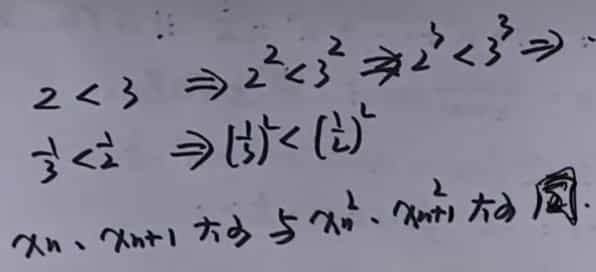 2 < 3 ⇒ 2² < 3² ⇒ 2³ < 3³ ⇒ ..
1/3 < 1/2 ⇒ (1/3)² < (1/2)²
xn、xn+1 大小 与 xn²、xn+1² 大小 同.